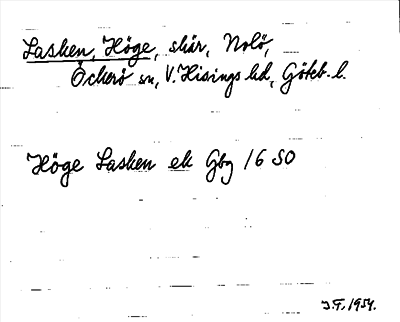 Lasken, Höge, skär, Nolö,
Öckerö sn, V. Hisings hd, Göteb. l.
Höge Lasken ek Gbg 16 SO
J.F. 1954.